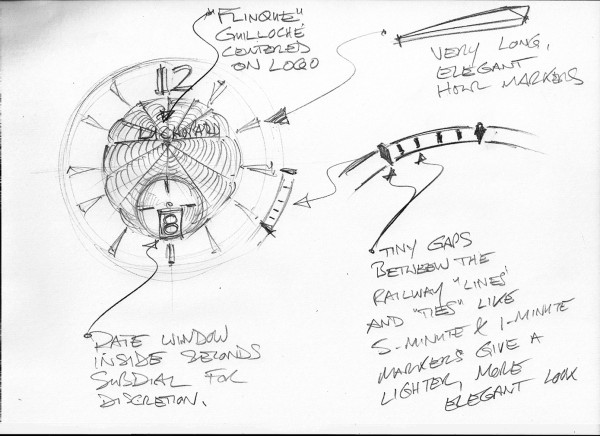 "FLINQUE"
GUILLOCHÉ
CENTERED
ON LOGO
VERY LONG,
ELEGANT
HOUR MARKERS
12
8
DATE WINDOW
INSIDE SECONDS
SUBDIAL FOR
DISCRETION.
TINY GAPS
BETWEEN THE
RAILWAY "LINES"
AND "TIES" LIKE
5-MINUTE & 1-MINUTE
MARKERS GIVE A
LIGHTER, MORE
ELEGANT LOOK